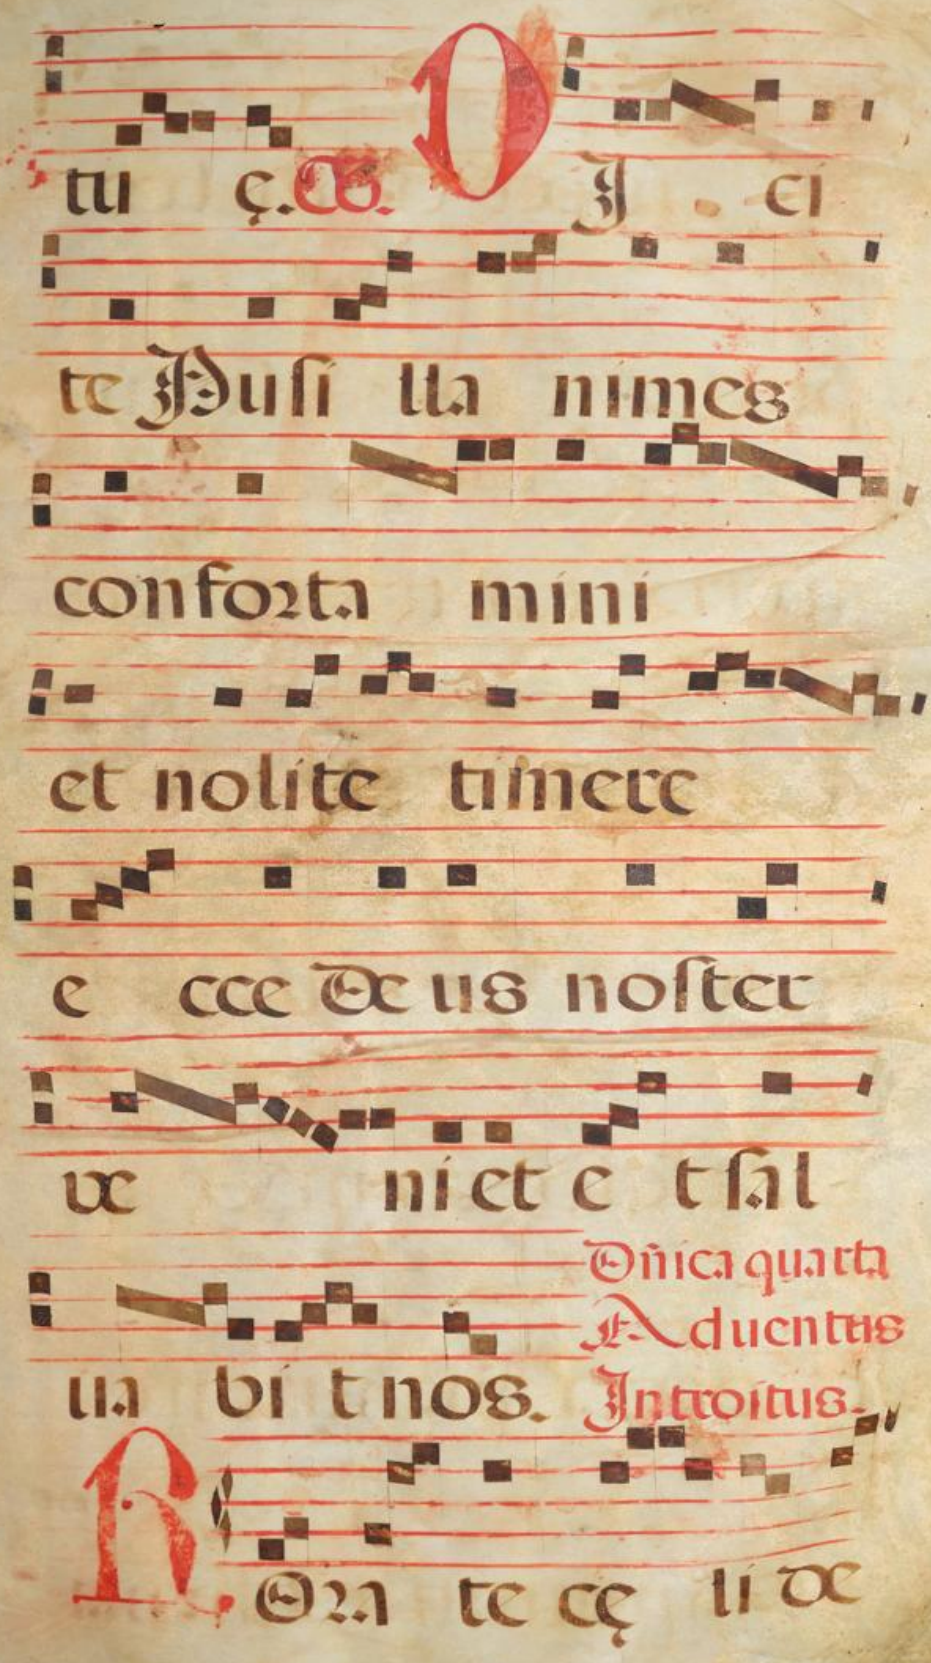 tu ę. Co. D I ci
te Pusi lla nimes
conforta mini
et nolite timere
e cce De us noster
ve ni et e t sal
ua bi t nos.
Dñica quarta
Aduentus
Introitus.
R Ora te cę li de